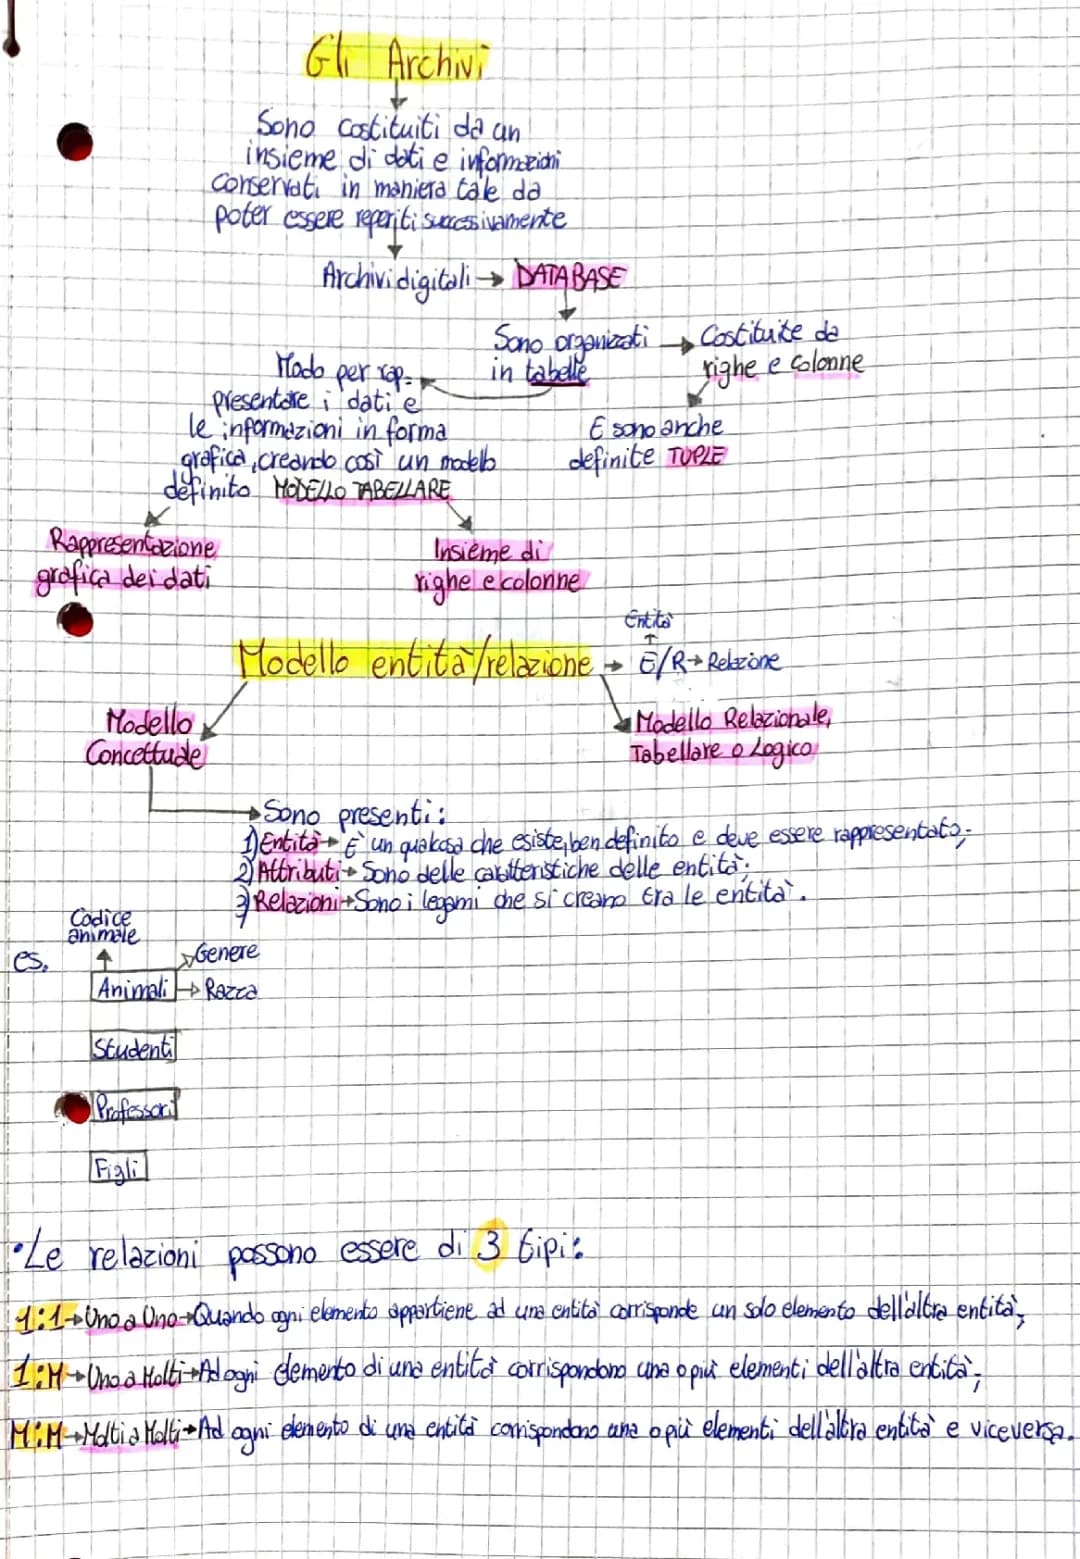 Gli Archivi
Sono costituiti da un
insieme di dati e informazioni
conservati in maniera tale da
poter essere reperiti successivamente
Archivi digitali → DATABASE
Sono organizzati
in tabelle
→ Costituite da
righe e colonne
E sono anche
definite TUPLE
Modo per rap-
presentare i dati e
le informazioni in forma
grafica, creando così un modello
definito MODELLO TABELLARE
Rappresentazione
grafica dei dati
Insieme di
righe e colonne
Entità
Modello entità/relazione → E/R → Relazione
Modello
Concettuale
Modello Relazionale,
Tabellare o Logico
Sono presenti:
1) Entità → E' un qualcosa che esiste, ben definito e deve essere rappresentato;
2) Attributi → Sono delle caratteristiche delle entità;
3) Relazioni → Sono i legami che si creano tra le entità.
Codice
animale
es.
Genere
Animali → Razza
Studenti
Professori
Figli
•Le relazioni possono essere di 3 tipi:
1:1 → Uno a Uno → Quando ogni elemento appartiene ad una entità corrisponde un solo elemento dell'altra entità;
1:M → Uno a Molti → Ad ogni elemento di una entità corrispondono una o più elementi dell'altra entità;
M:M → Molti a Molti → Ad ogni elemento di una entità corrispondono una o più elementi dell'altra entità e viceversa.